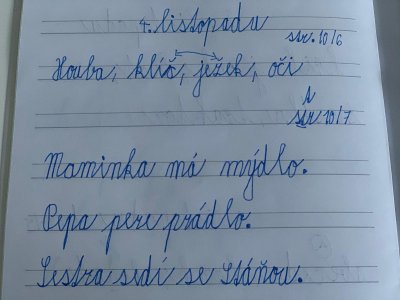 4. listopadu
str. 10/6
Houba, klíč, ježek, oči
str 10/7
Maminka má mýdlo.
Pepa pere prádlo.
Sestra sedí se Stáňou.